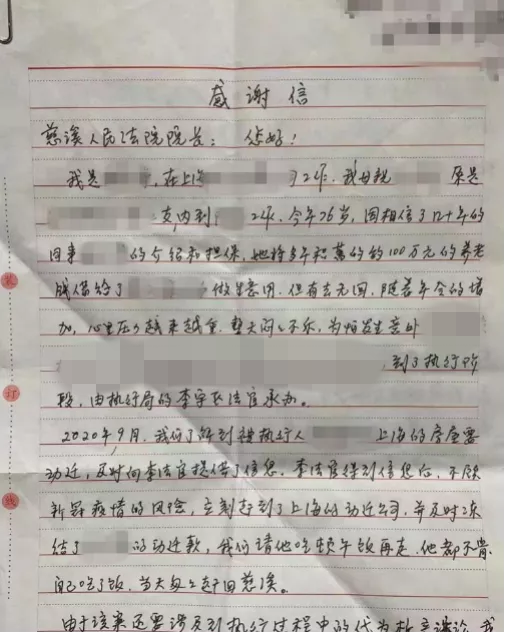 感谢信
慈溪人民法院院长： 您好！
我是 ，在上海 工作，我母亲 原是
支内到 工作，今年76岁，因相信了几十年的
同事 的介绍和担保，她将多年积蓄的约100万元的养老
钱借给了 做生意用，但有去无回，随着年令的增
加，心里压力越来越重，整天闷闷不乐，为怕发生意外
，到了执行阶
段，由执行局的李 法官承办。
2020年9月，我们了解到被执行人 上海的房屋要
动迁，及时向李法官提供了信息，李法官得到信息后，不顾
新冠疫情的风险，立刻赶到了上海的动迁公司，并及时冻
结了 的动迁款，我们请他吃顿午饭再走，他都不肯
自己吃了饭，当天晚上赶回慈溪。
由于该案还要涉及到执行过程中的代为析产诉讼，我
装
订
线